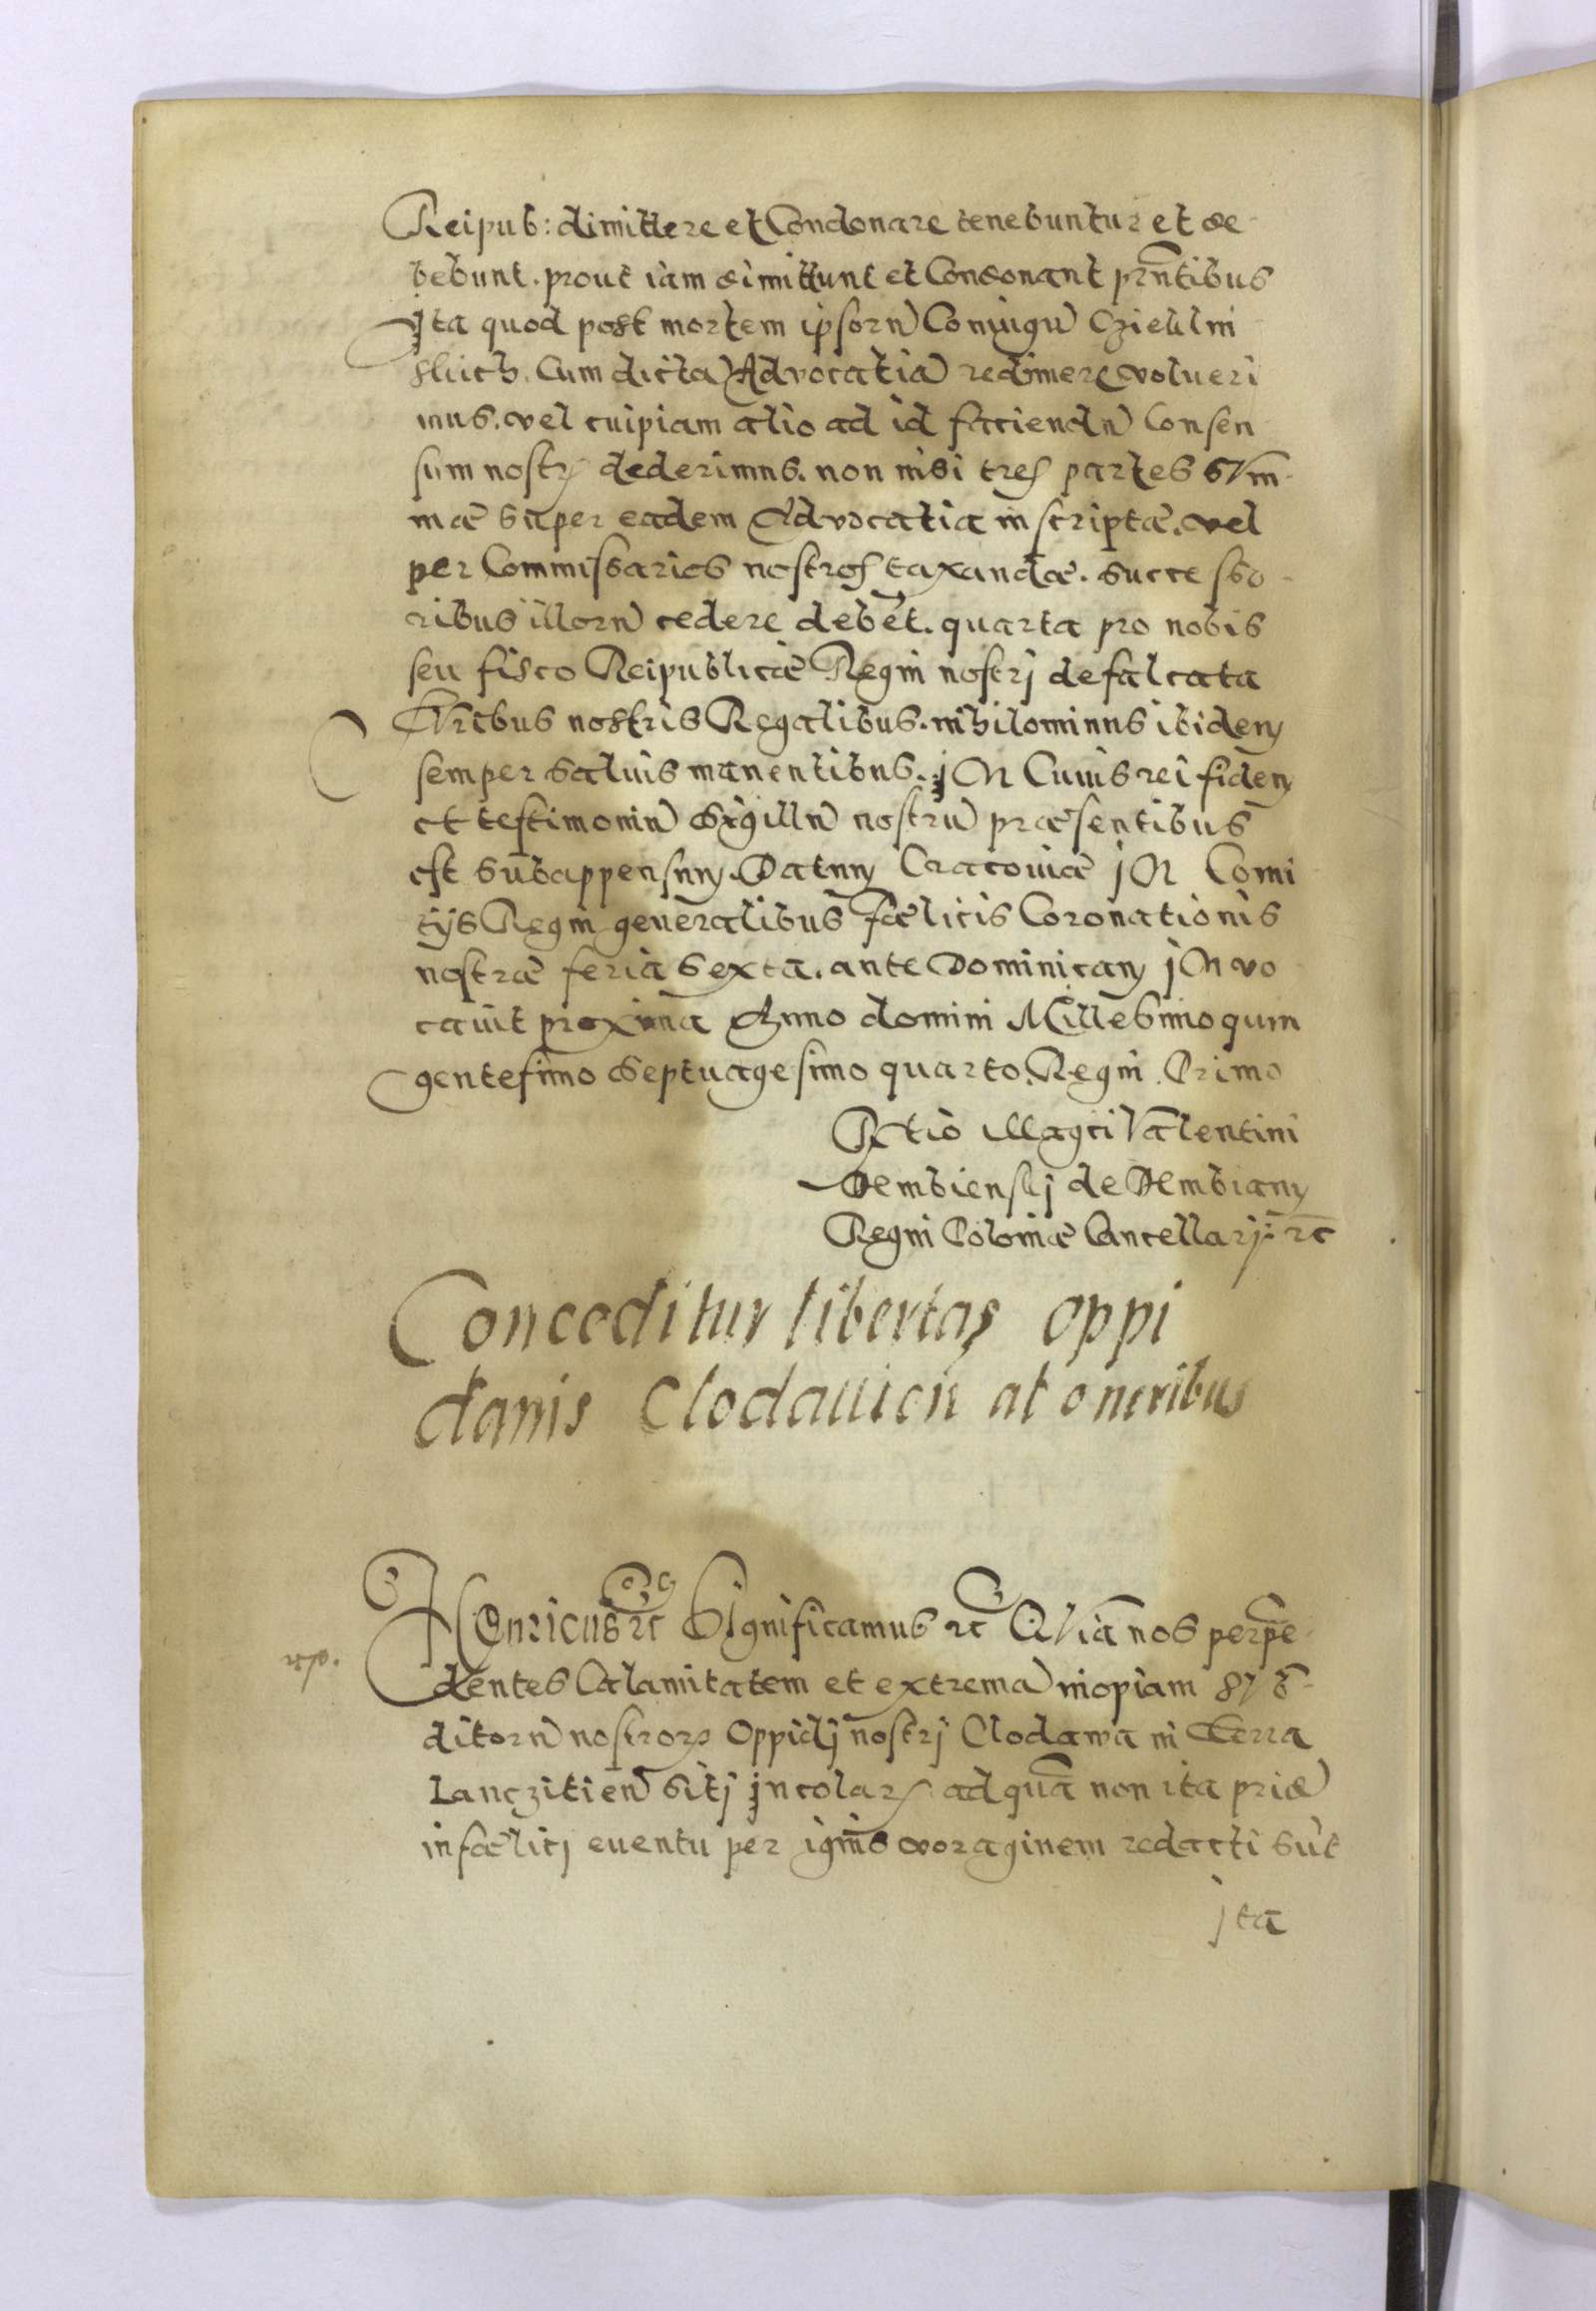 Reipub: dimittere et Condonare tenebuntur et de
bebunt. prout iam dimittunt et Condonant prñtibus
Ita quod post mortem ipsorũ Coniugũ
Cum dicta Advocatia redimere volueri
mus. vel cuipiam alio ad id faciendũ Consen
sum nostrũ dederimus. non nisi tres partes sum
mæ super eadem Advocatia inscriptæ. vel
per Commissarios nostros taxandæ. successo
ribus illorũ cedere debet. quarta pro nobis
seu fisco Reipublicæ Regni nostrj defalcata
Iuribus nostris Regalibus. nihilominus ibidem
semper saluis manentibus. jN Cuius rei fidem
et testimoniũ Sigillũ nostrũ præsentibus
est subappensum. Datum Cracouiæ jN Comi
tijs Regni generalibus fælicis Coronationis
nostræ feria sexta. ante Dominicam jNvo
cauit proxima Anno domini Millesimo quin
gentesimo Septuagesimo quarto. Regni Primo
Rtio Magci Valentini
Dembienskj de Dembiany
Regni Poloniæ Cancellarij: rc
Conceditur libertas oppi
danis Clodauień ab oneribus
Henricus rc Significamus rc Quia nos perpe
dentes Calamitatem et extremã inopiam sub
ditorũ nostrorz Oppidj nostrj Clodawa in Terra
Lancziciẽn sitj jncolarz ad quã non ita pridẽ
infælicj euentu per ignis voraginem redacti sũt
jta